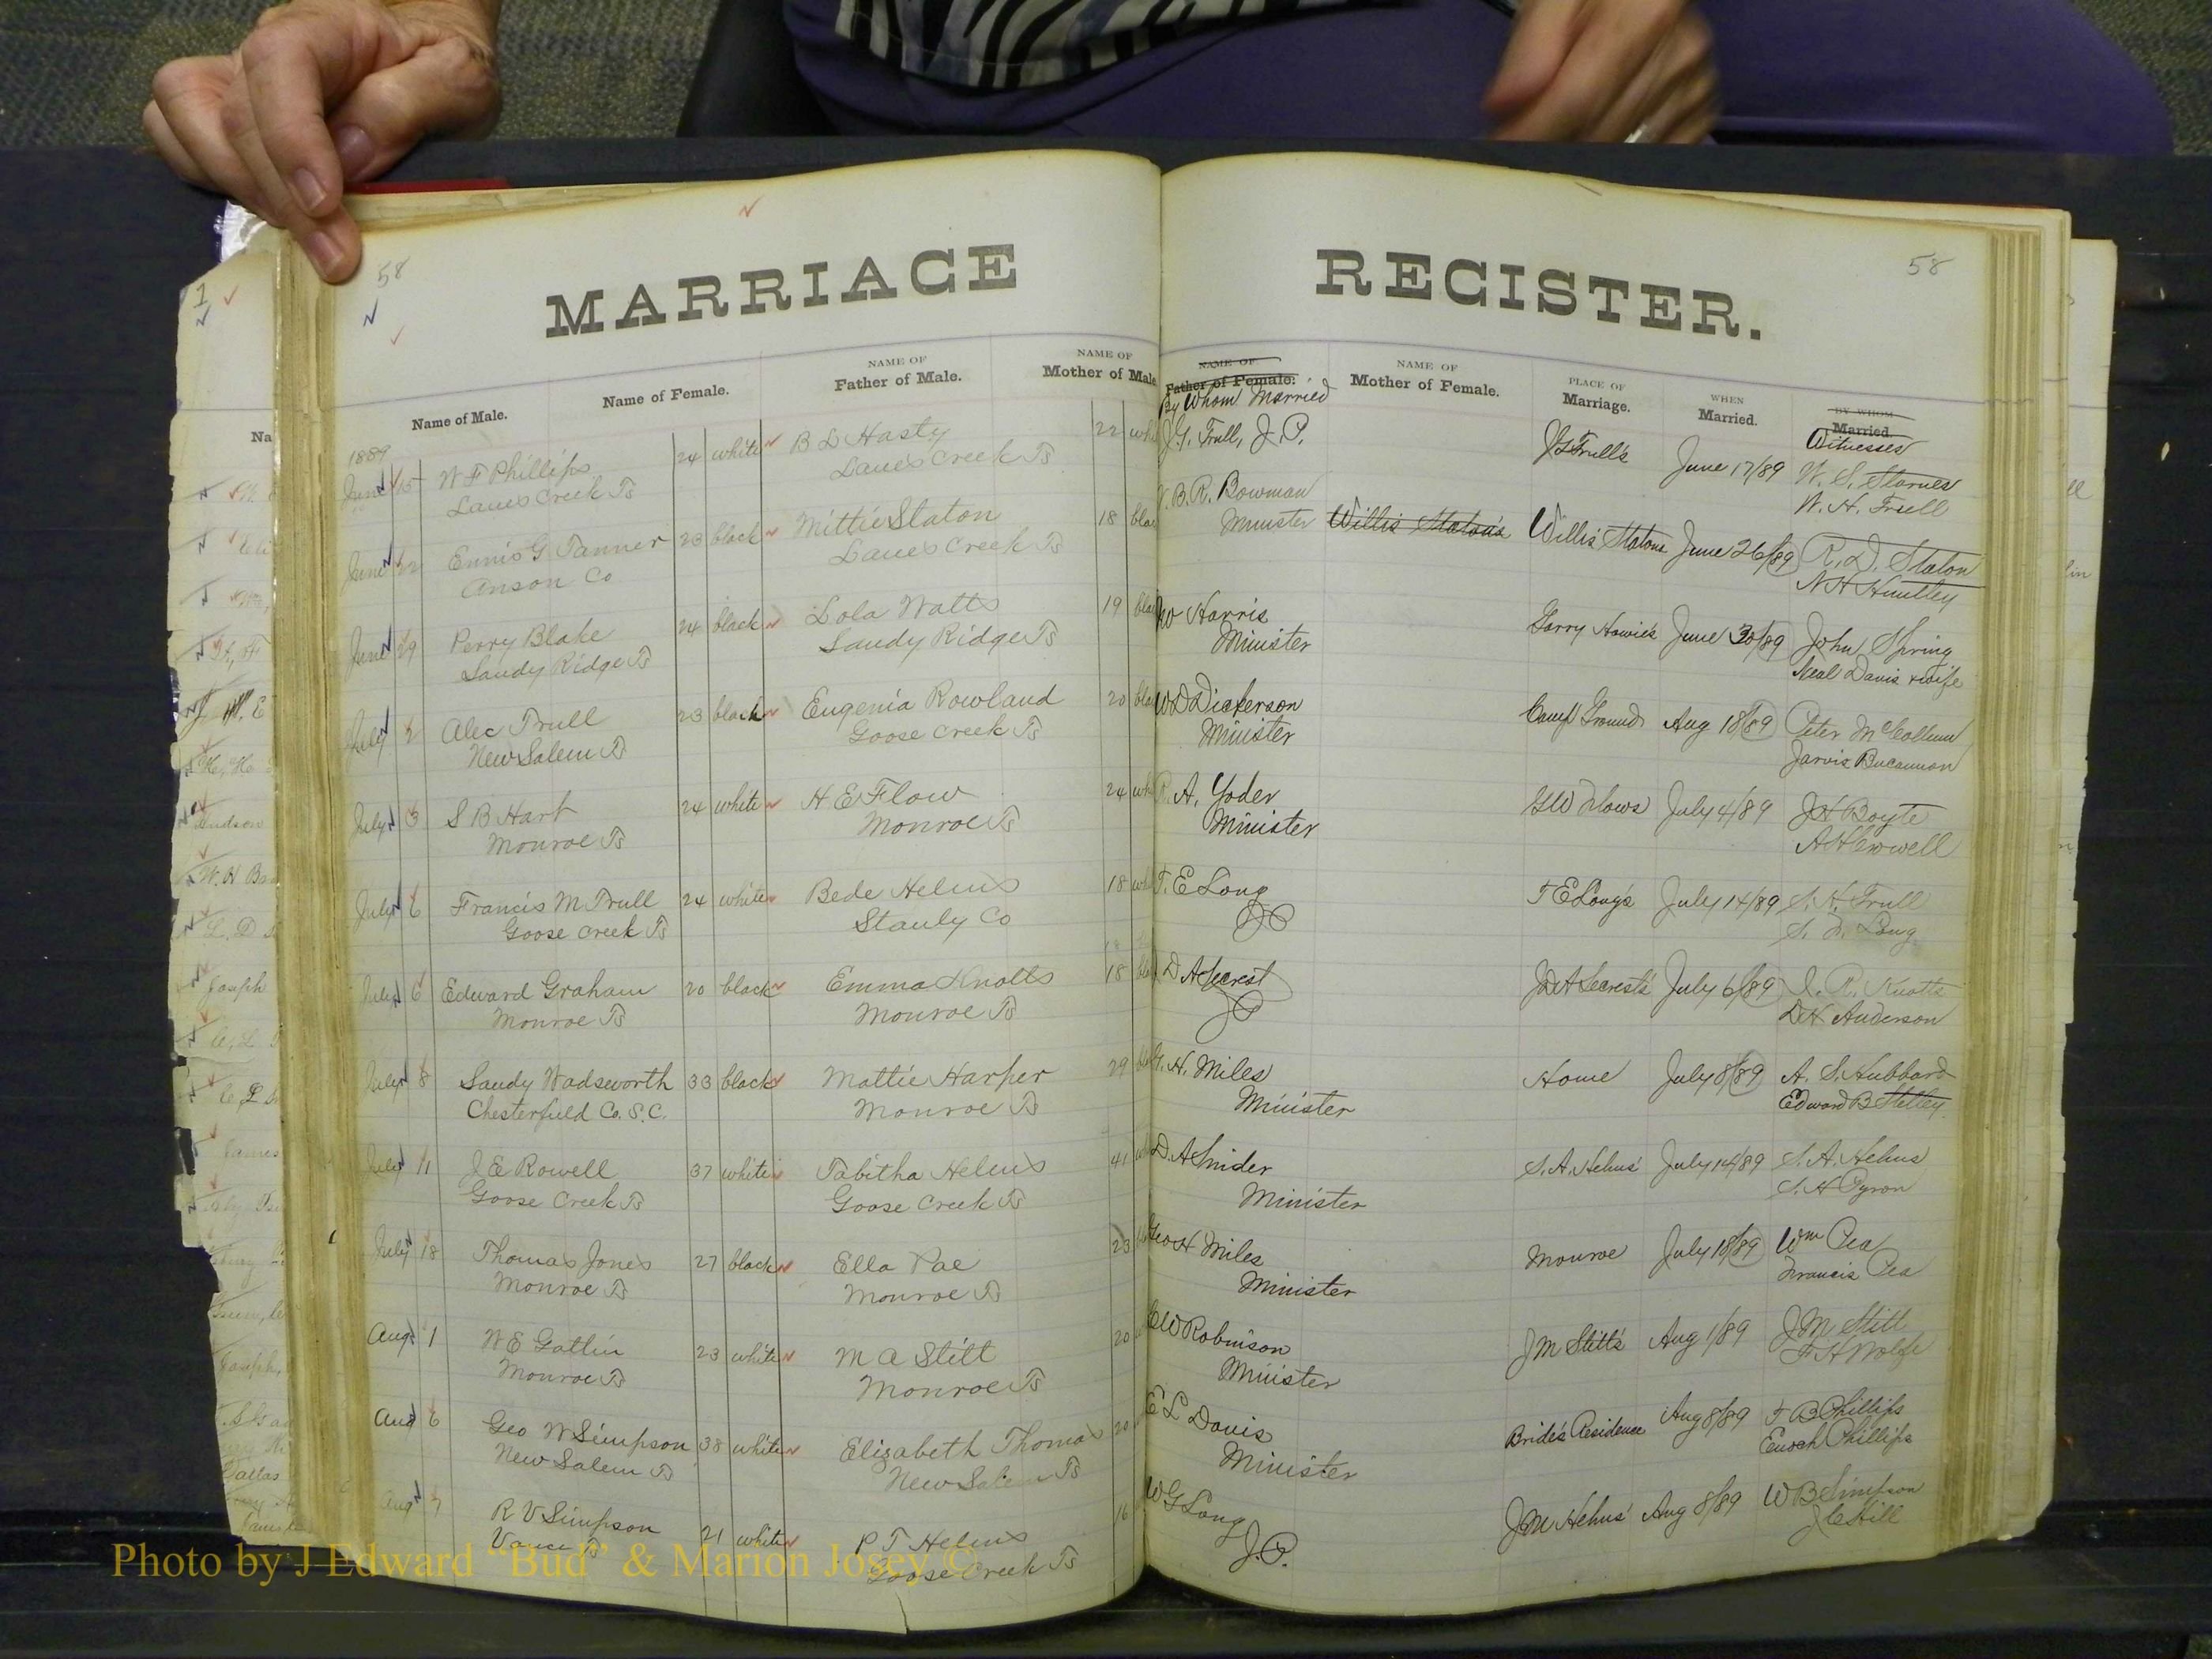 58
MARRIAGE REGISTER.
58
Name of Male.
Name of Female.
NAME OF
Father of Male.
NAME OF
Mother of Male
NAME OF
Father of Female.
By Whom Married
NAME OF
Mother of Female.
PLACE OF
Marriage.
WHEN
Married.
BY WHOM
Married.
Witnesses
1889
June 15 W F Phillips 24 white B L Hasty 22 J. G. Trull, J. P. J G Trull's June 17/89 W. S. Starnes
Lanes Creek Ts Lanes Creek Ts W. H. Trull
June 22 Ennis G Tanner 23 black Mittie Staton 18 B. R. Bowman Willis Staton's Willis Statons June 26/89 R. D. Staton
Anson Co Lanes Creek Ts Minister N H Huntley
June 29 Perry Blake 24 black Lola Watts 19 Harris June 30/89 John Spring
Sandy Ridge Ts Sandy Ridge Ts Minister Neal Davis & wife
July 2 Alec Trull 23 black Eugenia Rowland 20 W D Dickerson Camp Ground Aug 18/89 Peter McCollum
New Salem Ts Goose Creek Ts Minister Jarvis Bucannon
July 3 S B Hart 24 white H E Flow 24 R. A. Yoder G W Flows July 4/89 J H Boyte
Monroe Ts Monroe Ts Minister A H Crowell
July 6 Francis M Trull 24 white Bede Helms 18 T. E Long T E Long's July 14/89 S. H. Trull
Goose Creek Ts Stanly Co JP Long
July 6 Edward Graham 20 black Emma Knotts 18 D A Secrest J D A Secrest's July 6/89 Knotts
Monroe Ts Monroe Ts JP D H Anderson
July 8 Sandy Wadsworth 33 black Mattie Harper 29 H. Miles Home July 8/89 A. S. Hubbard
Chesterfield Co. S. C. Monroe Ts Minister Edward B
July 11 J E Rowell 37 white Tabitha Helms 41 D. A Snider S. A. Helms' July 14/89 S. A. Helms
Goose Creek Ts Goose Creek Ts Minister S. H Pyron
July 18 Thomas Jones 27 black Ella Rae 23 Geo H Miles Monroe July 18/89 Wm Pea
Monroe Ts Monroe Ts Minister Francis Pea
Aug 1 W E Gatlin 23 white M A Stitt 20 C W Robinson J M Stitt's Aug 1/89 J M Stitt
Monroe Ts Monroe Ts Minister F H Wolfe
Aug 6 Geo W Simpson 38 white Elizabeth Thomas 20 E L Davis Bride's Residence Aug 8/89 T B Phillips
New Salem Ts New Salem Ts Minister Enoch Phillips
Aug 7 R V Simpson 21 white P T Helms 16 W G Long J M Helms' Aug 8/89 W B Simpson
Vance Ts Goose Creek Ts J. P. J C Hill
Photo by J Edward “Bud” & Marion Josey ©